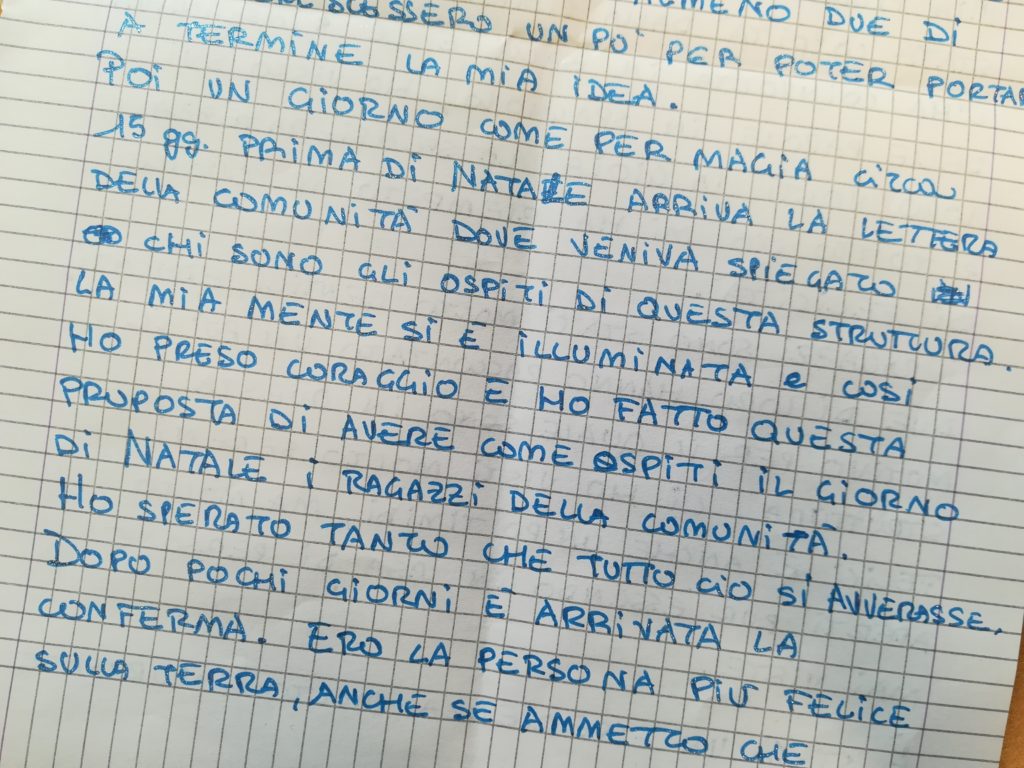 SCUSSERO UN PO' PER POTER PORTAR
DUE DI
A TERMINE LA MIA IDEA.
POI UN GIORNO COME PER MAGIA CIRCA
15 gg. PRIMA DI NATALE ARRIVA LA LETTERA
DELLA COMUNITÀ DOVE VENIVA SPIEGATO
CHI SONO GLI OSPITI DI QUESTA STRUTTURA.
LA MIA MENTE SI È ILLUMINATA e COSÌ
HO PRESO CORAGGIO E HO FATTO QUESTA
PROPOSTA DI AVERE COME OSPITI IL GIORNO
DI NATALE I RAGAZZI DELLA COMUNITÀ.
HO SPERATO TANTO CHE TUTTO CIO SI AVVERASSE.
DOPO POCHI GIORNI È ARRIVATA LA
CONFERMA. ERO LA PERSONA PIÙ FELICE
SULLA TERRA, ANCHE SE AMMETTO CHE